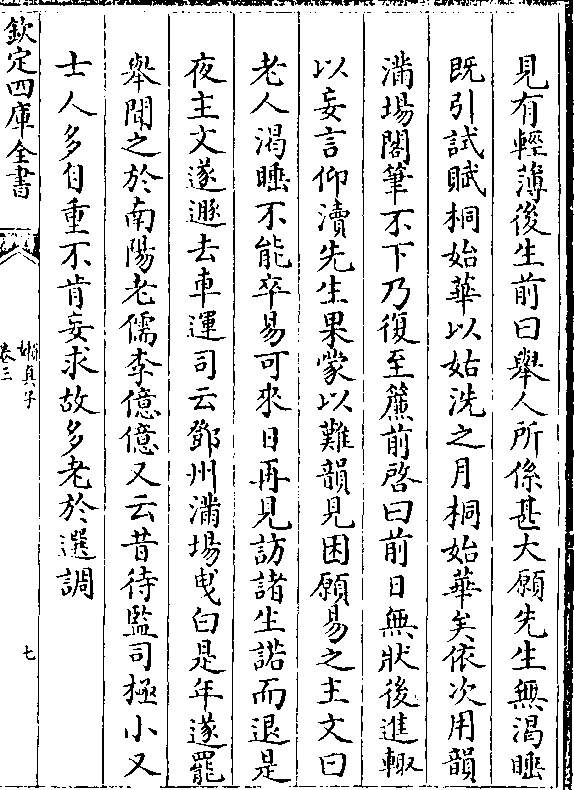 見有輕薄後生前曰舉人所係甚大願先生無渴睡
既引試賦桐始華以姑洗之月桐始華矣依次用韻
滿場閣筆不下乃復至簾前啓曰前日無狀後進輙
以妄言仰瀆先生果蒙以難韻見困願易之主文曰
老人渴睡不能卒易可來日再見訪諸生諾而退是
夜主文遂遯去車運司云鄧州滿場曵白是年遂罷
舉間之於南陽老儒李億億又云昔待監司極小又
士人多自重不肯妄求故多老於選調
欽定四庫全書
嬾真子
卷三
七